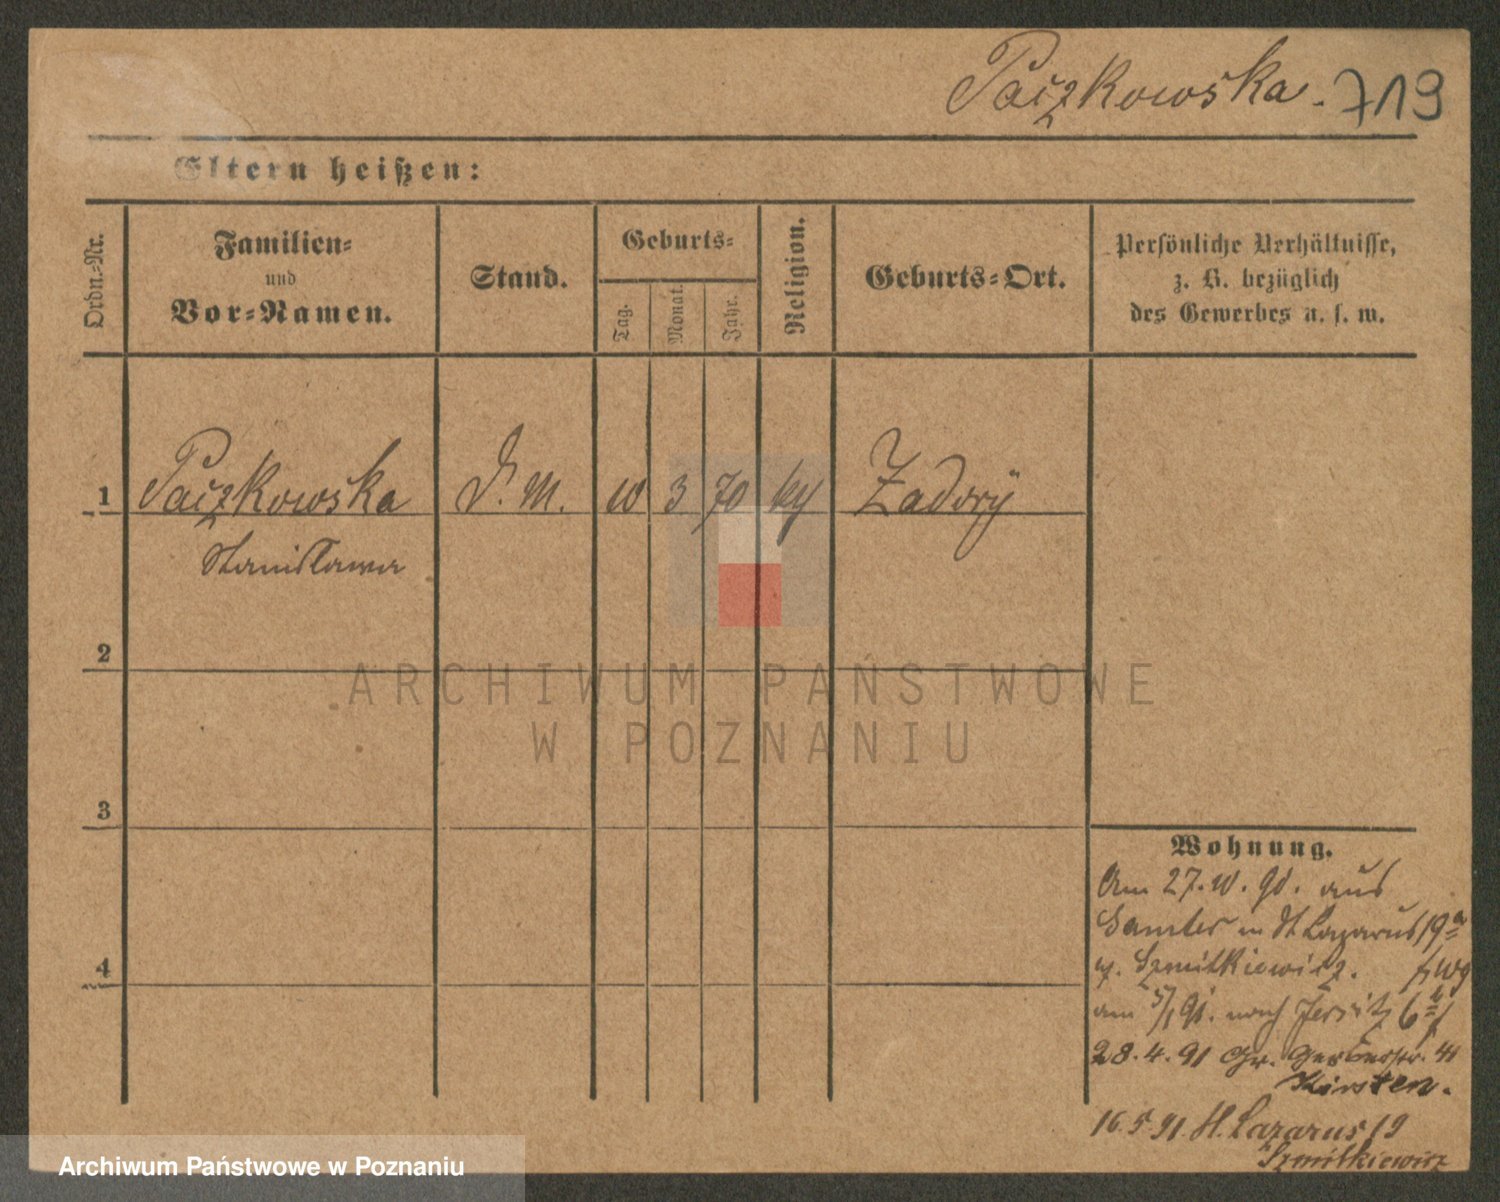 Paczkowska. 719
Eltern heißen:
Ordn.-Nr.
Familien-
und
Vor-Namen.
Stand.
Geburts-
Tag.
Monat.
Jahr.
Religion.
Geburts-Ort.
Persönliche Verhältnisse,
z. B. bezüglich
des Gewerbes u. s. w.
1 Paczkowska D. M. 10 3 70 Zadory
Stanisława
2
3
4
Wohnung.
Am 27. 10. 90. aus
Samter in St Lazarus 19a
Szmitkiewicz.
am 5/1 91. nach Jersitz 6
28. 4. 91 Gr. Gerberstr. 41
Kirsten.
16. 5. 91. St. Lazarus 19
Szmitkiewicz
ARCHIWUM PAŃSTWOWE
W POZNANIU
Archiwum Państwowe w Poznaniu